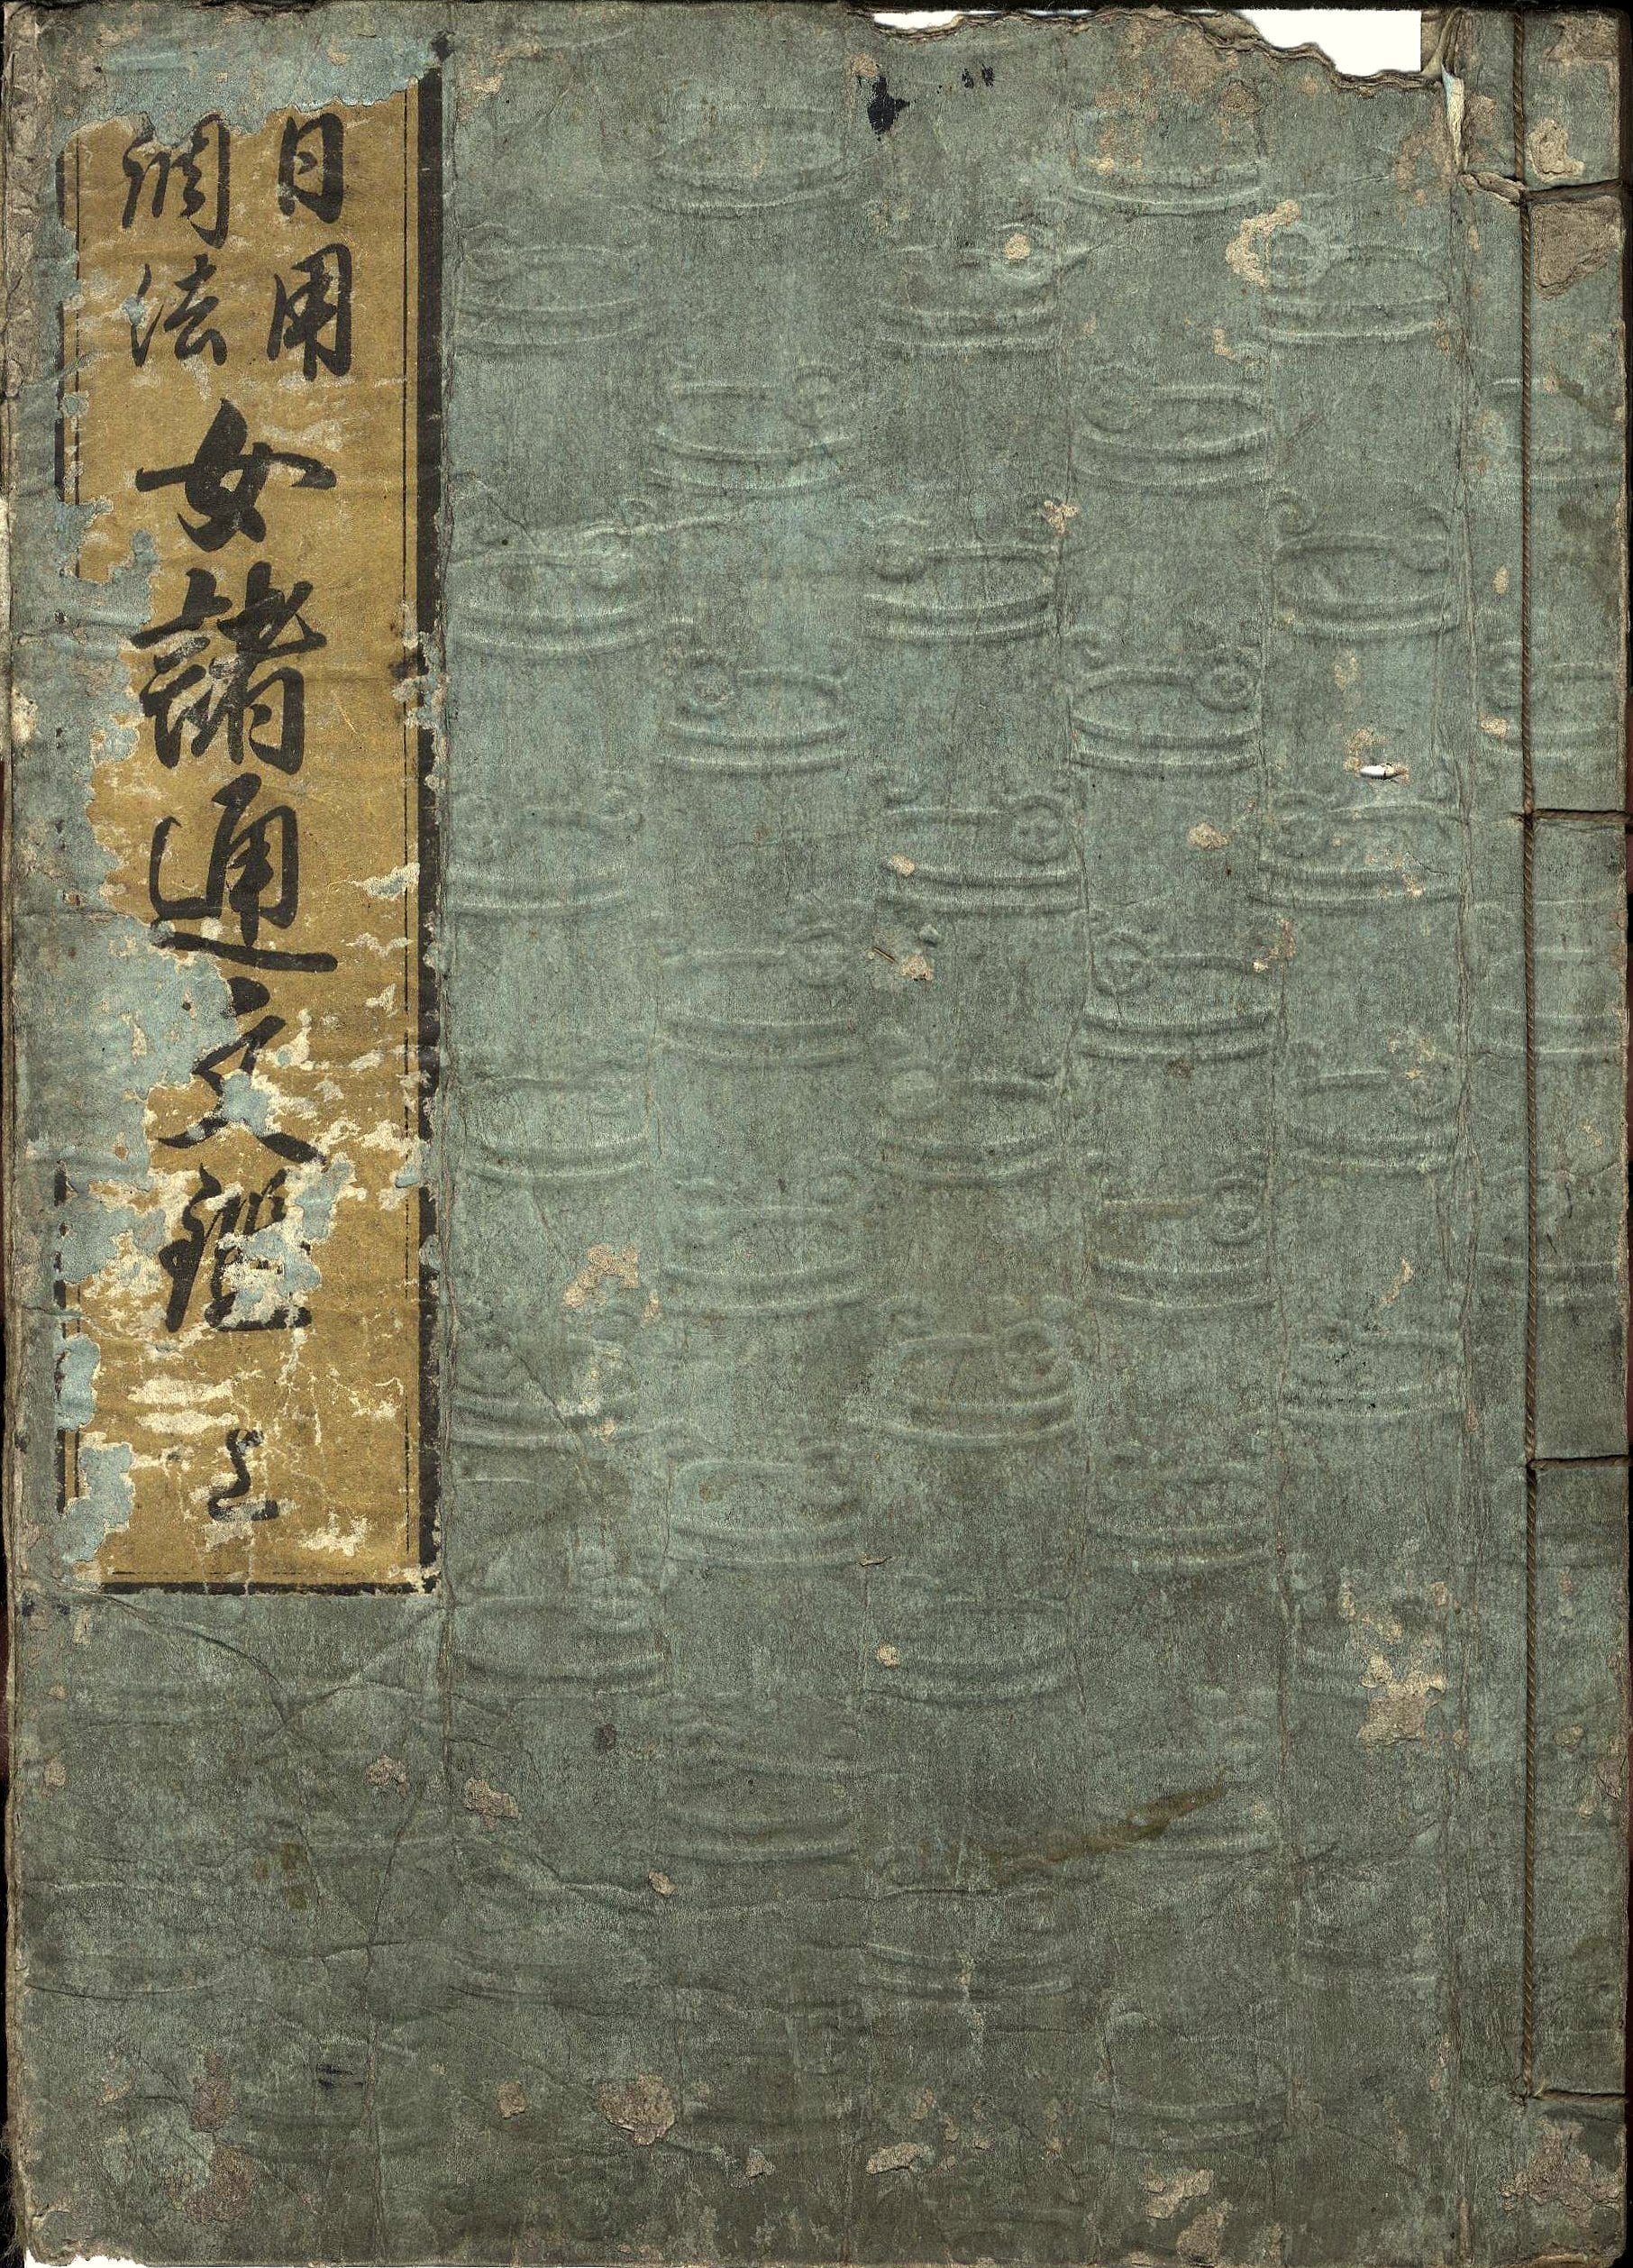 日用
調法
女諸通文鑑 上